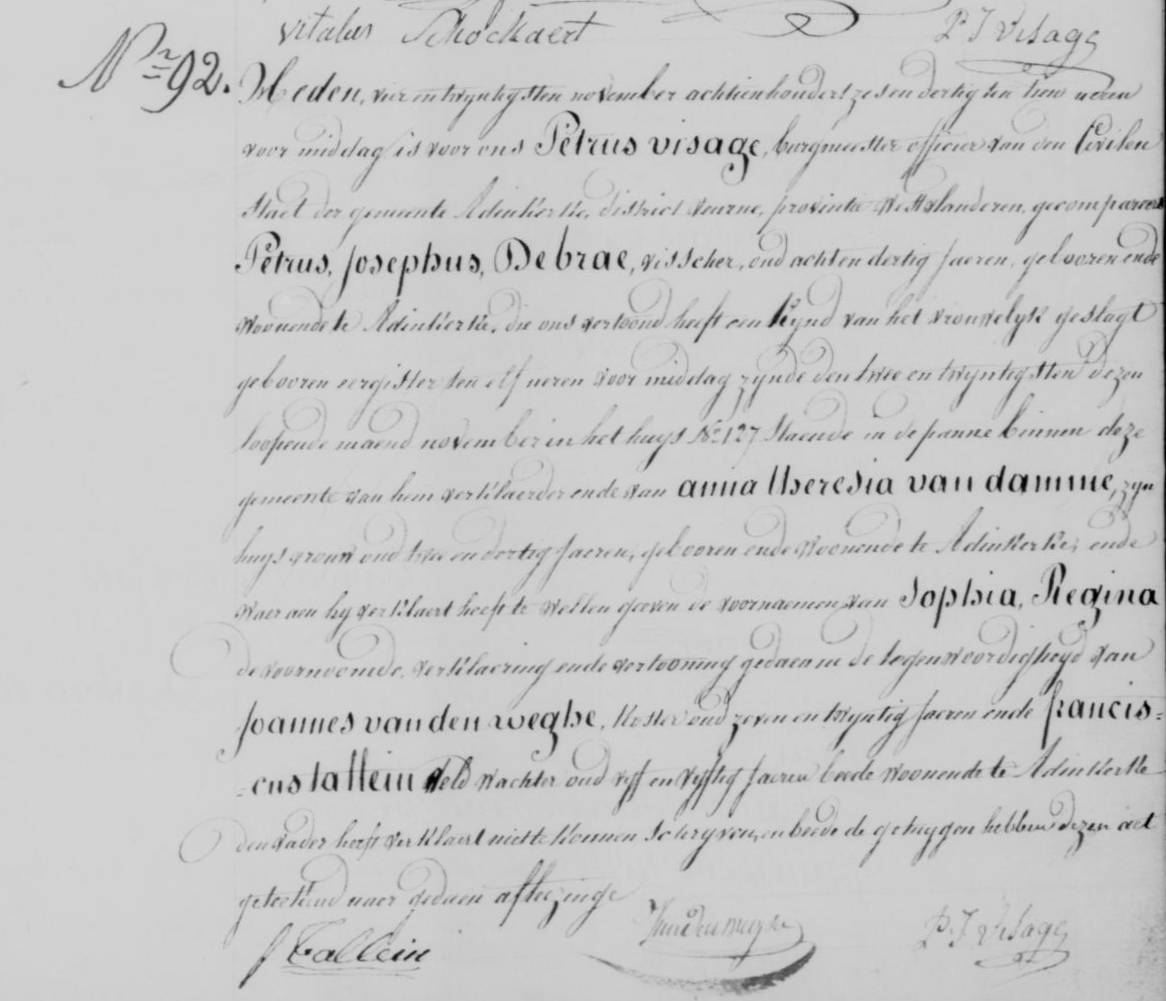 vitalus Schockaert P J Visage
Nr 92. Heden, vier en twyntigsten november achtienhondert zes en dertig ten tien ueren
voor middag is voor ons Petrus visage, burgmeester officier van den Civilen
Staet der gemeente Adinkerke, district veurne, provintie Westvlanderen, gecompareert
Petrus, Josephus, Debrae, visscher, oud acht en dertig Jaeren, gebooren ende
woonende te Adinkerke, die ons vertoond heeft een kynd van het vrouwelyk geslagt
gebooren eergister ten elf ueren voor middag zynde den twee en twyntigsten dezen
loopende maend november in het huys No 127 staende in de panne binnen deze
gemeente van hem verklaerder ende van anna theresia van damme, zyn
huysvrouw oud twee en dertig Jaeren, gebooren ende woonende te Adinkerke, ende
waer aen hy verklaert heeft te willen geeven de voornaemen van Sophia, Regina
de voornoemde verklaering ende vertooning gedaen in de tegenwoordigheyd van
Joannes vanden weghe, koster oud zeven en twyntig Jaeren ende francis=
=cus tallein Veld wachter oud vyf en vyftig Jaeren beede woonende te Adinkerke
den vader heeft verklaert niet te konnen schryven, en beede de getuygen hebben dezen act
geteekend naer gedaen afleezinge
f Tallein P. J Visage